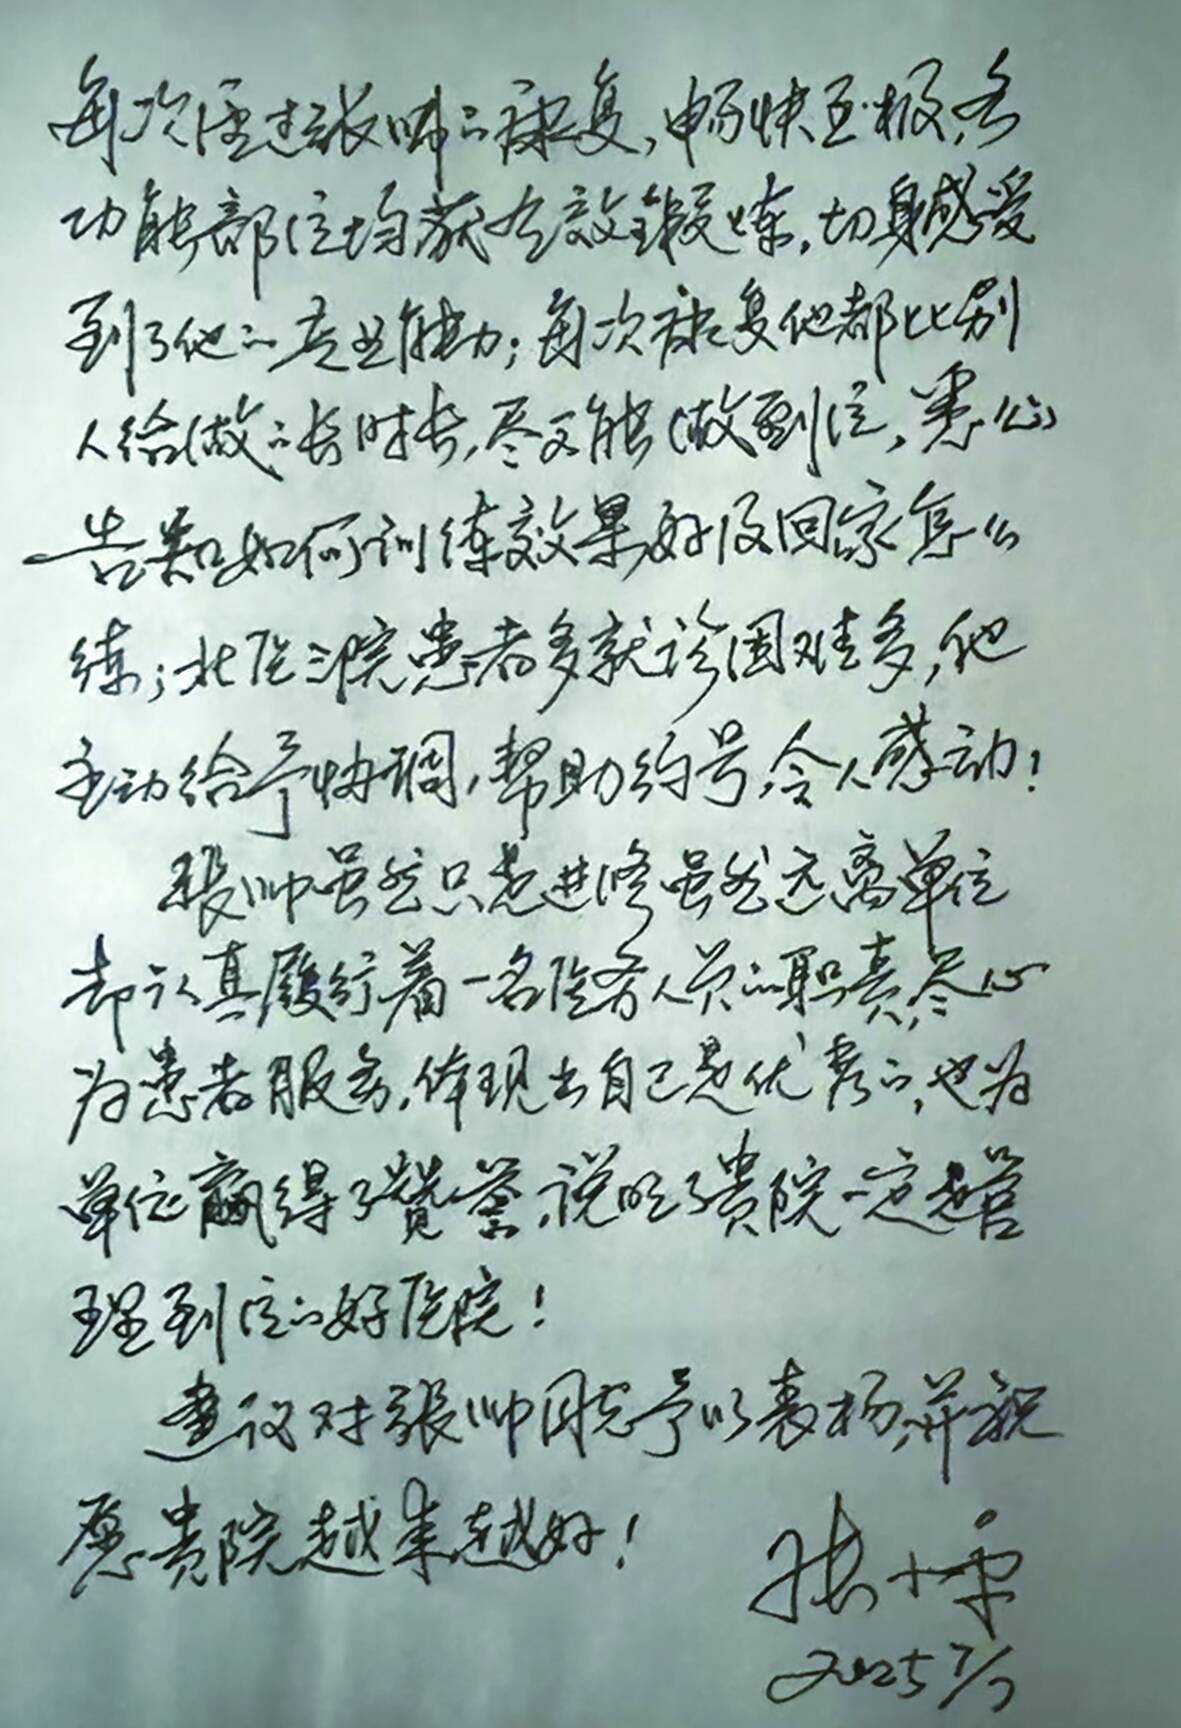 每次经过张帅的康复，畅快至极，各
功能部位均获有效锻炼，切身感受
到了他的专业能力；每次康复他都比别
人给做的长时长，尽可能做到位，悉心
告知如何训练效果好及回家怎么
练；北医三院患者多就诊困难多，他
主动给予协调，帮助约号，令人感动！
张帅虽然只是进修虽然远离单位
却认真履行着一名医务人员的职责，尽心
为患者服务，体现出自己是优秀的，也为
单位赢得了赞誉，说明了贵院一定是管
理到位的好医院！
建议对张帅同志予以表扬，并祝
愿贵院越来越好！
张小
2025 7/7